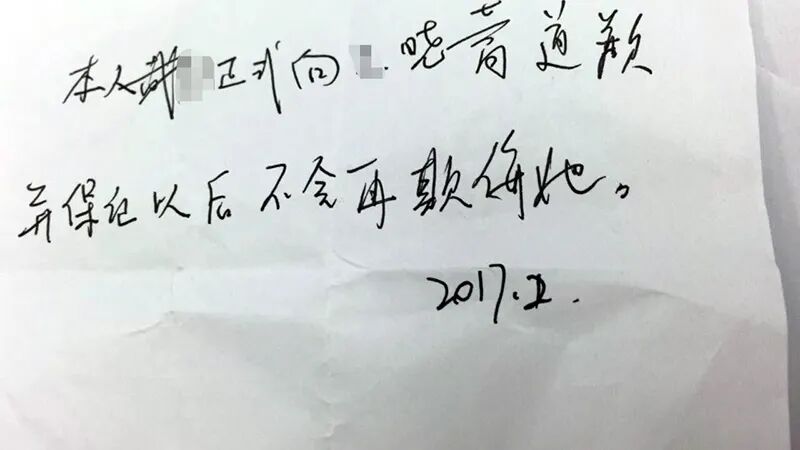 本人戴正式向晓蒿道歉
并保证以后不会再欺侮她。
2017.